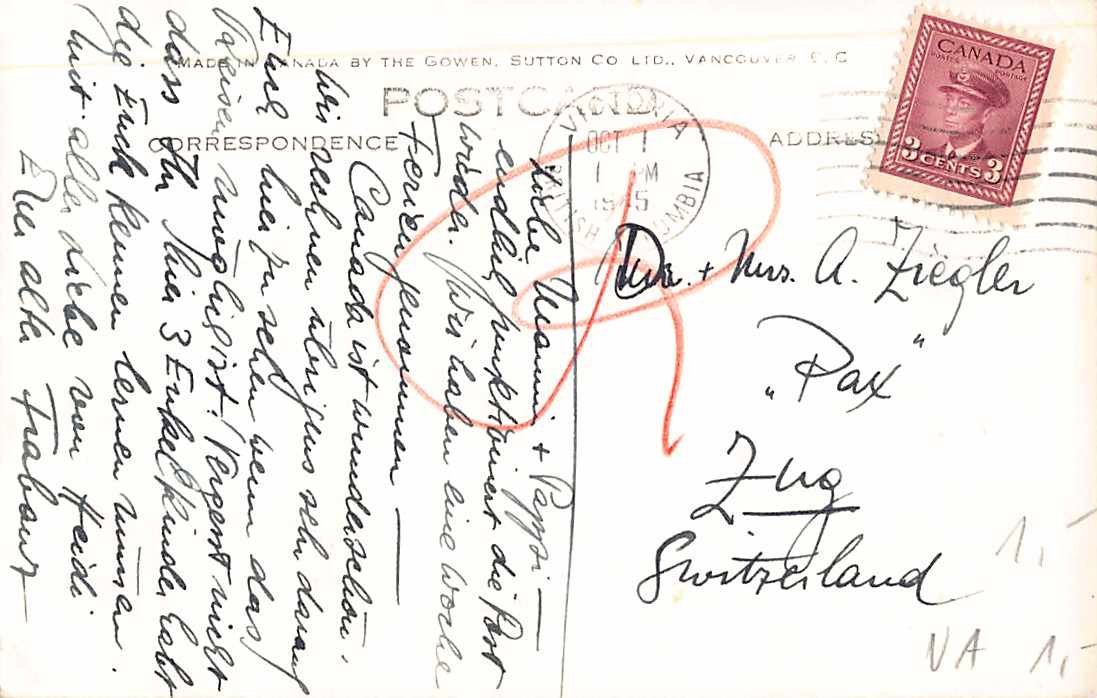 MADE IN CANADA BY THE GOWEN, SUTTON CO LTD., VANCOUVER, B. C.
POSTCARD
CORRESPONDENCE
ADDRESS
CANADA
POSTES POSTAGE
3 CENTS 3
VICTORIA
OCT 1
1 PM
1945
BRITISH COLUMBIA
Liebe Mammi + Pappi —
endlich funktioniert die Post
wieder. Wir haben eine Woche
Ferien genommen —
Canada ist wunderschön.
Wir rechnen übrigens sehr darauf
Euch hier zu sehen wenn das
Reisen möglich ist! Vergesst nicht
dass Ihr hier 3 Enkelkinder habt
die Euch kennen lernen müssen.
Mit aller Liebe von Heidi
Euer alter
Mr. + Mrs. A. Ziegler
„Pax"
Zug
Switzerland
1,-
VA 1,-